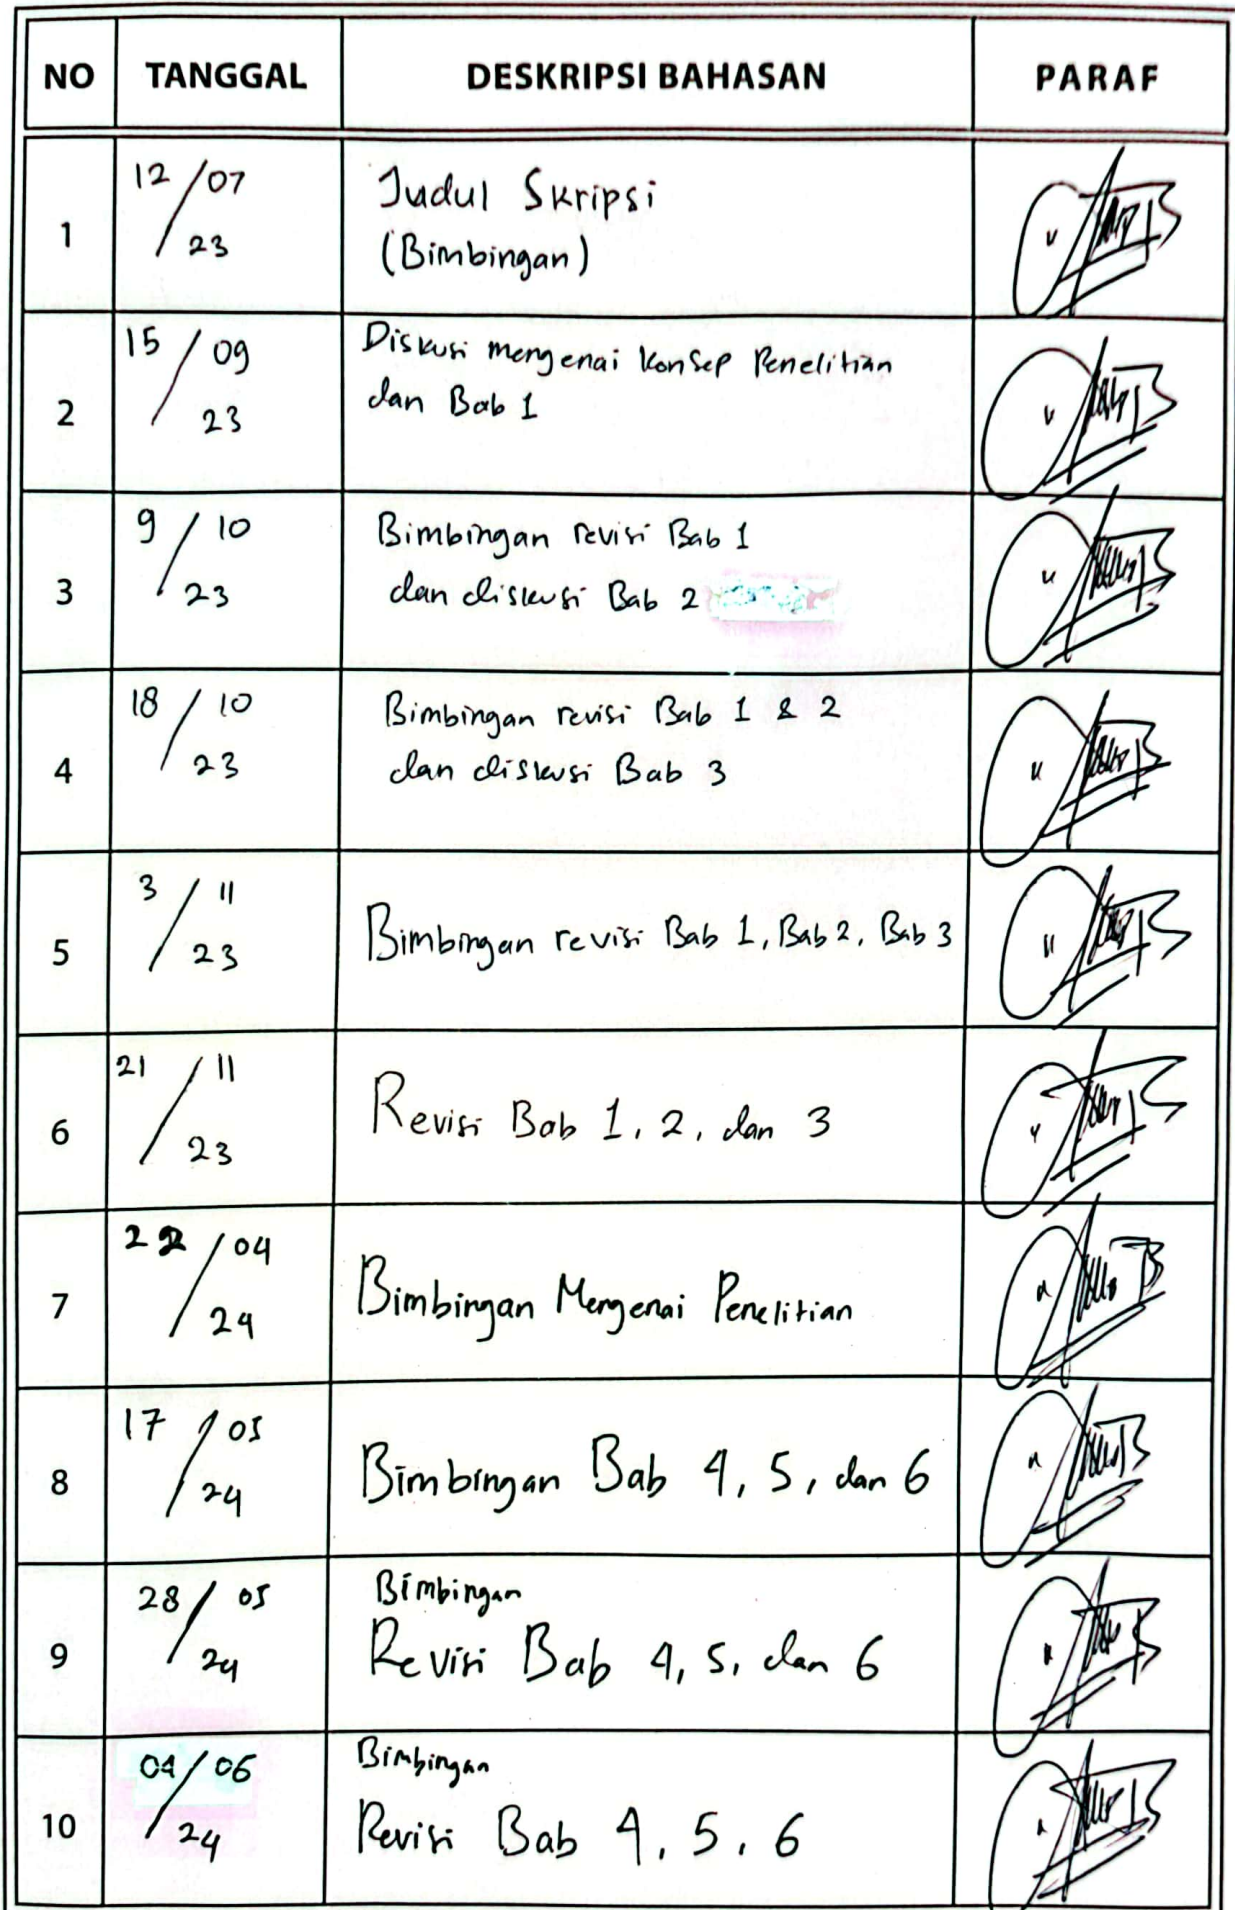 NO TANGGAL DESKRIPSI BAHASAN PARAF
1 12/07/23 Judul Skripsi
(Bimbingan)
2 15/09/23 Diskusi mengenai konsep Penelitian
dan Bab 1
3 9/10/23 Bimbingan revisi Bab 1
dan diskusi Bab 2
4 18/10/23 Bimbingan revisi Bab 1 & 2
dan diskusi Bab 3
5 3/11/23 Bimbingan revisi Bab 1, Bab 2, Bab 3
6 21/11/23 Revisi Bab 1, 2, dan 3
7 22/04/24 Bimbingan Mengenai Penelitian
8 17/05/24 Bimbingan Bab 4, 5, dan 6
9 28/05/24 Bimbingan
Revisi Bab 4, 5, dan 6
10 04/06/24 Bimbingan
Revisi Bab 4, 5, 6